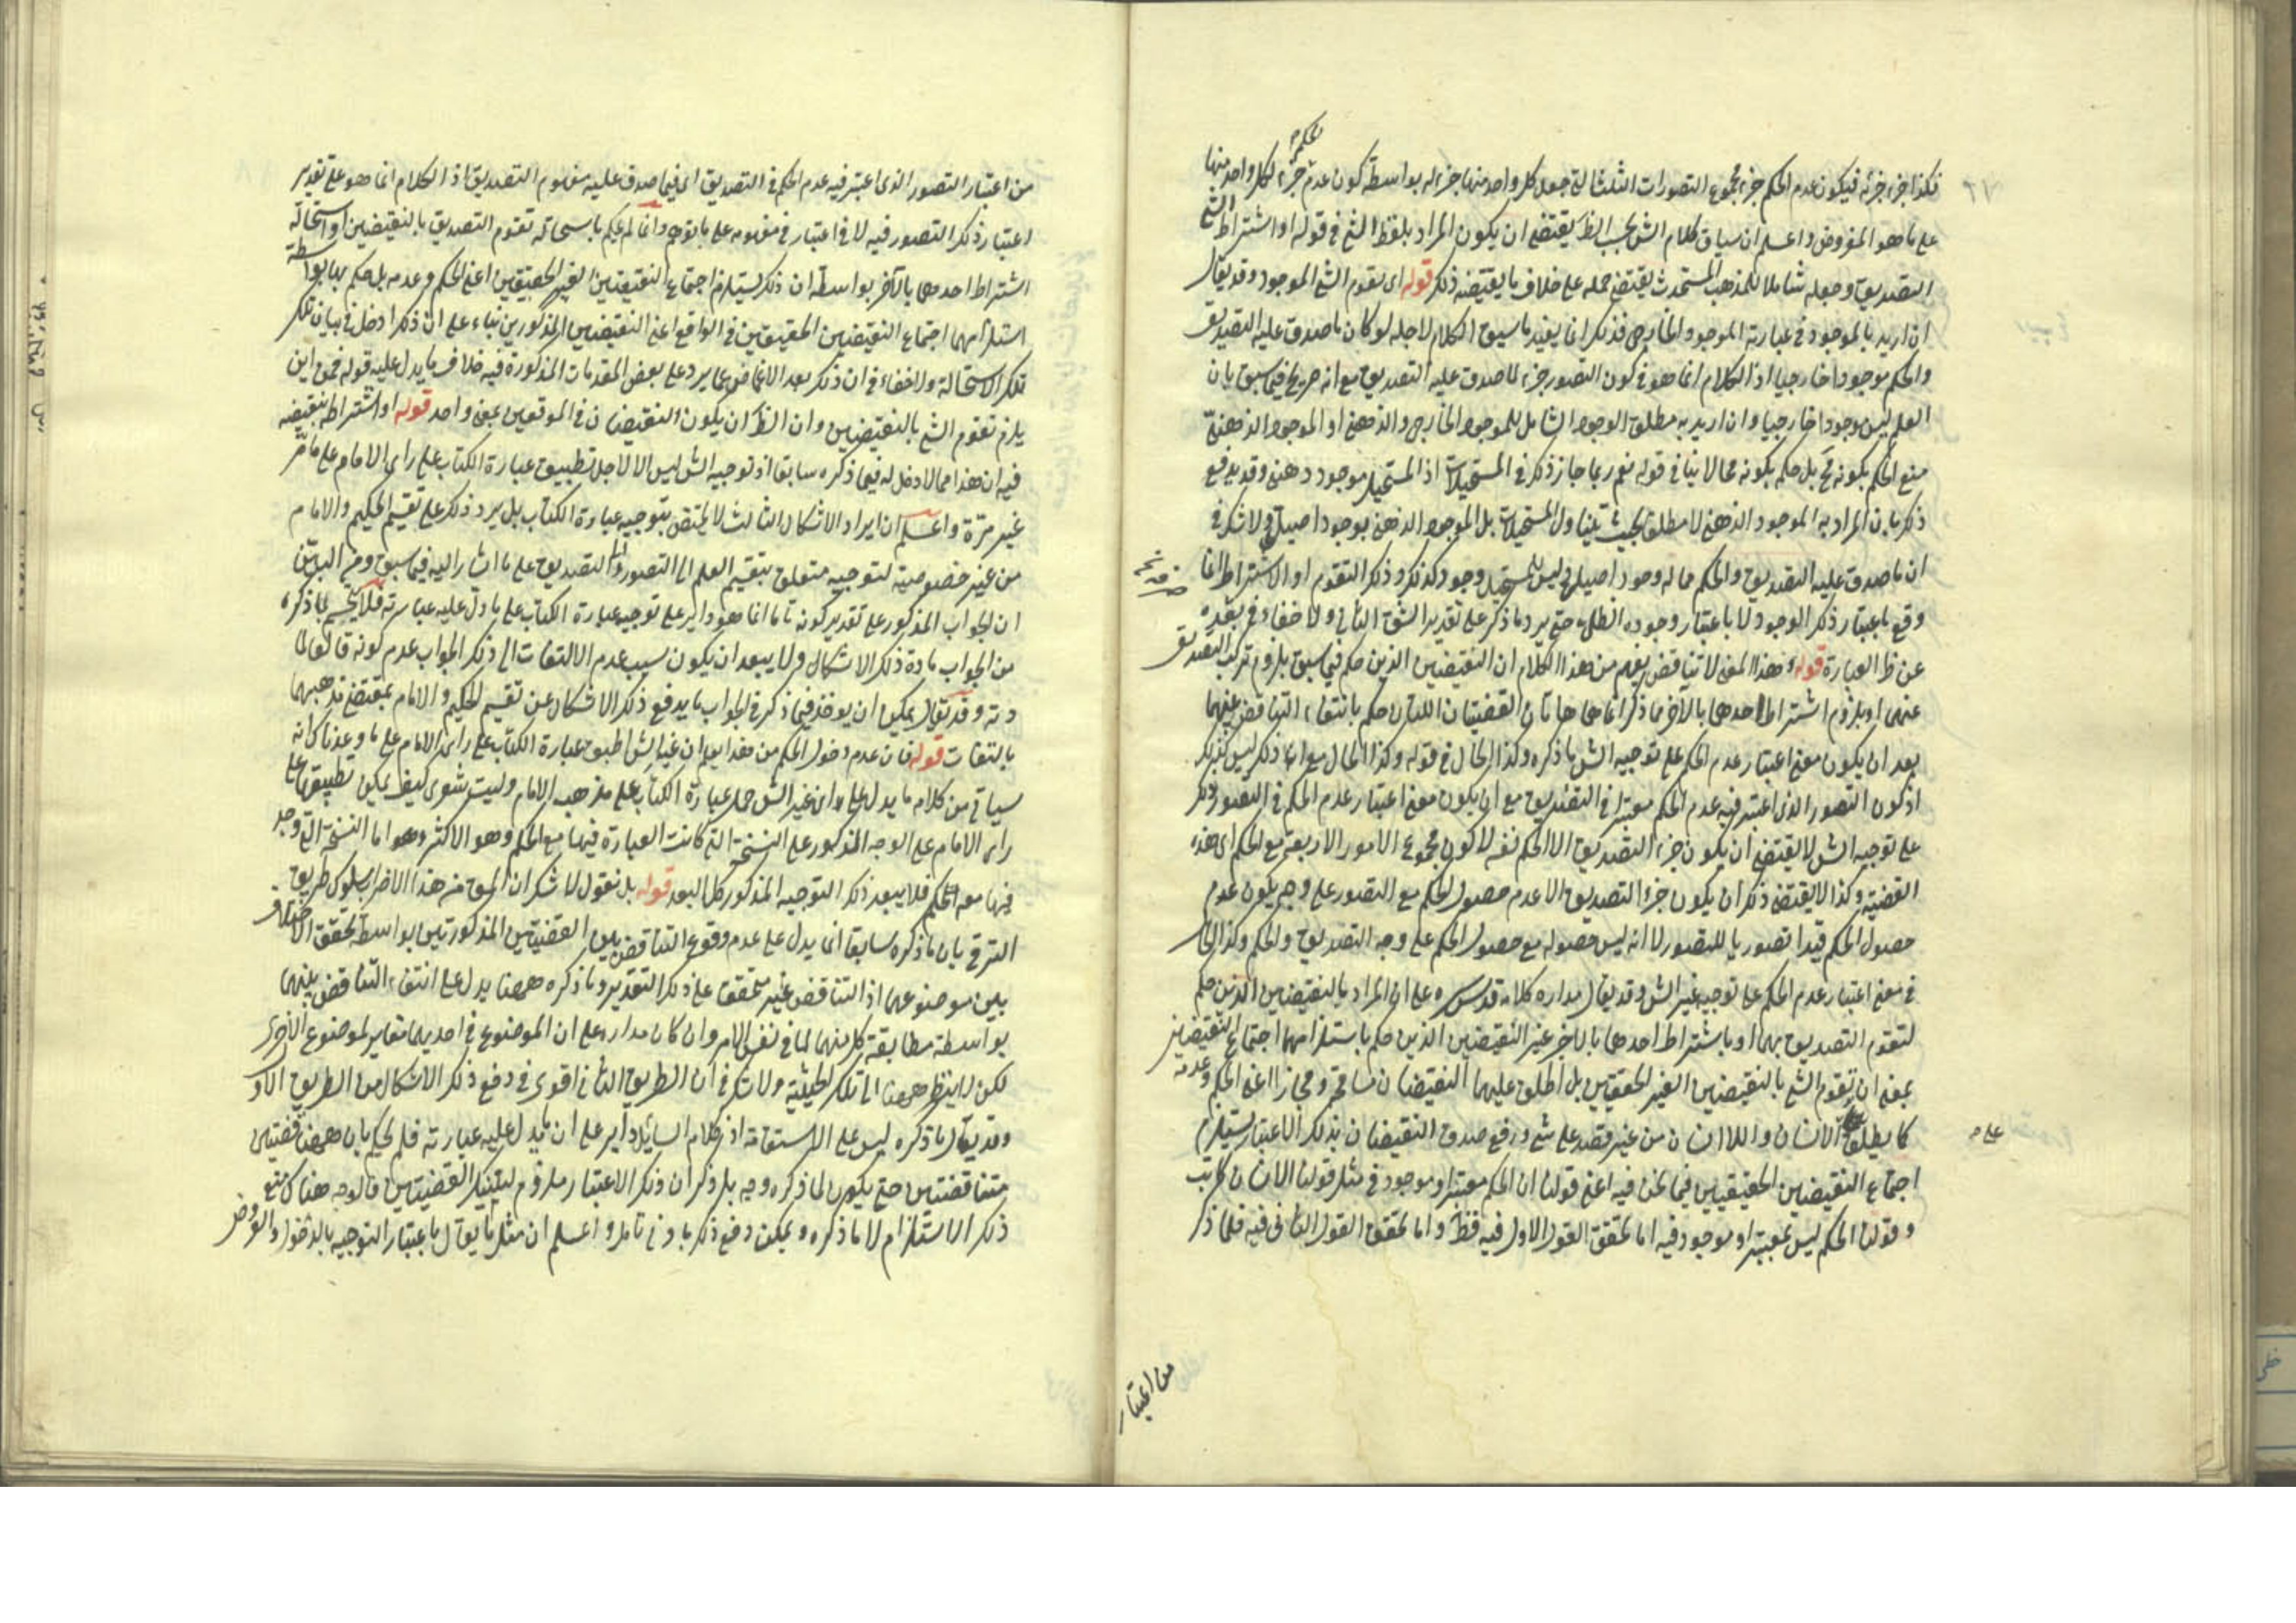 فكذا جزء جزئه فيكون عدم الحكم جزء مجموع التصورات الثلث التي جعل كل واحد منها جزء له بواسطة كون عدم الحكم جزء لكل واحد منها
على ما هو المفروض واعلم ان سياق كلام الش بحسب الظ يقتضى ان يكون المراد بلفظ الشئ في قوله او اشتراط الشئ
التصديق وجعله شاملا للمذهب المستحدث يقتضى حمله على خلاف ما يقتضيه ذكر قوله اى تقوم الشئ الموجود وقد يقال
ان اريد بالموجود في عبارته الموجود الخارجى فذلك انما يفيد ما سيق الكلام لاجله لو كان ما صدق عليه التصديق
والحكم موجودا خارجيا اذ الكلام انما هو في كون التصور جزء لما صدق عليه التصديق مع انه صرح فيما سبق بان
العلم ليس موجودا خارجيا وان اريد به مطلق الوجود الشامل للموجود الخارجى والذهنى او الموجود الذهنى
منع الحكم بكونه مح بل حكم بكونه محالا ينافى قوله نعم ربما جاز ذلك في المستحيلات اذ المستحيل موجود ذهنى وقد يدفع
ذلك بان المراد به الموجود الذهنى لا مطلق بحيث يتناول المستحيلات بل الموجود الذهنى بوجود اصيل ولا شك في
ان ما صدق عليه التصديق والحكم مما له وجود اصيل وليس للمستحيل وجود كذلك وذكر التقوم او الاشتراط انما
وقع باعتبار ذلك الوجود لا باعتبار وجوده الظلى حتى يرد ما ذكر على تقدير الشق الثانى ولا خفاء في بعده
عن ظ العبارة قوله وهذا المعنى لا تناقض يفهم من هذا الكلام ان النقيضين الذين حكم فيما سبق بلزوم تركب التصديق
عنهما او بلزوم اشتراط احدهما بالآخر مما ذكر انما هما هاتان القضيتان اللتان حكم بانتفاء التناقض بينهما
بعد ان يكون معنى اعتبار عدم الحكم على توجيه الش ما ذكره وكذا الحال في قوله وكذا الحال مع ان ذلك ليس كذلك
اذ كون التصور الذى اعتبر فيه عدم الحكم معتبرا في التصديق مع ان يكون معنى اعتبار عدم الحكم في التصور ذلك
على توجيه الش لا يقتضى ان يكون جزء التصديق الا الحكم نفسه لا كون مجموع الامور الاربعة مع الحكم اى هذه
القضية وكذا لا يقتضى ذلك ان يكون جزء التصديق الا عدم حصول الحكم مع التصور على وجه يكون عدم
حصول الحكم قيدا تصوريا للتصور لا انه ليس حصوله مع حصول الحكم على وجه التصديق والحكم وكذا الحال
في معنى اعتبار عدم الحكم على توجيه غير الش وقد يقال مدار كلامه قدس سره على ان المراد بالنقيضين الذين حكم
لتقوم التصديق بهما او باشتراط احدهما بالآخر غير النقيضين الذين حكم باستلزامهما اجتماع النقيضين
بمعنى ان تقوم الشئ بالنقيضين الغير الحقيقيين بل اطلق عليهما النقيضان مسامحة ومجازا اعنى الحكم وعدمه
كما يطلق على الانسان واللا انسان من غير قصد على شئ ورفع صدق النقيضان بذلك الاعتبار يستلزم
اجتماع النقيضين الحقيقيين فيما نحن فيه اعنى قولنا ان الحكم معتبر او موجود في مثل قولنا الانسان كاتب
وقولنا الحكم ليس بمعتبر او موجود فيه اما تحقق القول الاول فيه فظ واما تحقق القول الثانى فيه فلما ذكر
من اعتبار
من اعتبار التصور الذى اعتبر فيه عدم الحكم في التصديق اى فيما صدق عليه مفهوم التصديق اذ الكلام انما هو على تقدير
اعتبار ذلك التصور فيه لا في اعتبار في مفهومه على ما توهم وانما لم يحكم باستحالة تقوم التصديق بالنقيضين او استحالة
اشتراط احدهما بالآخر بواسطة ان ذلك يستلزم اجتماع النقيضين الغير الحقيقيين اعنى الحكم وعدمه بل حكم بها بواسطة
استلزامهما اجتماع النقيضين الحقيقيين في الواقع اعنى النقيضين المذكورين بناء على ان ذلك ادخل في بيان تلك
تلك الاستحالة ولا خفاء في ان ذلك بعد الاغماض عما يرد على بعض المقدمات المذكورة فيه خلاف ما يدل عليه قوله فمن اين
يلزم تقوم الشئ بالنقيضين وان الظ ان يكون النقيضان في الموقعين بمعنى واحد قوله او اشتراط بنقيضه
فيه ان هذا مما لا دخل له فيما ذكره سابقا اذ توجيه الش ليس الا لاجل تطبيق عبارة الكتاب على راى الامام على ما مر
غير مرة واعلم ان ايراد الاشكال الثالث لا يختص بتوجيه عبارة الكتاب بل يرد ذلك على تقسيم الحكيم والامام
من غير خصوصية لتوجيه متعلق بتقسيم العلم الى التصور والتصديق على ما اشار اليه فيما سبق ومن البين
ان الجواب المذكور على تقدير كونه تاما انما هو داير على توجيه عبارة الكتاب على ما دل عليه عبارته فلا يحسم بما ذكره
من الجواب مادة ذلك الاشكال ولا يبعد ان يكون سبب عدم الالتفات الى ذلك الجواب عدم كونه قالعا لما
دته وقد يقال يمكن ان يؤخذ فيما ذكر في الجواب ما يدفع ذلك الاشكال عن تقسيم الحكيم والامام بمقتضى مذهبهما
بالتفات قوله فان عدم دخول الحكم من هذا يعلم ان غير الش طبق عبارة الكتاب على راى الامام على ما وعدناك انه
سياتى من كلامه ما يدل على ان غير الش حمل عبارة الكتاب على مذهب الامام وليت شعرى كيف يمكن تطبيقها على
راى الامام على الوجه المذكور على النسخة التى كانت العبارة فيها مع الحكم وهو الاكثر واما النسخة التى وجد
فيها معه الحكم فلا يبعد ذلك التوجيه المذكور كل البعد قوله بل نقول لا شك ان الحق من هذا الاضراب سلوك طريق
الترقى بان ما ذكره سابقا انما يدل على عدم وقوع التناقض بين القضيتين المذكورتين بواسطة تحقق الاختلاف
بين موضوعهما اذ التناقض غير متحقق على ذلك التقدير وما ذكره ههنا يدل على انتفاء التناقض بينهما
بواسطة مطابقة كل منهما لما في نفس الامر وان كان مداره على ان الموضوع في احديهما مغاير لموضوع الاخرى
لكن لا ينظر ههنا الى تلك الحيثية ولا شك في ان الطريق الثانى اقوى في دفع ذلك الاشكال من الطريق الاول
وقد يقال ما ذكره ليس على الاستقامة اذ كلام السائل داير على ان ما يدل عليه عبارته فلم يحكم بان ههنا قضيتين
متناقضتين حتى يكون لما ذكره وجه بل ذكر ان ذلك الاعتبار ملزوم لتينك القضيتين فالوجه هناك منع
ذلك الاستلزام لا ما ذكره ويمكن دفع ذلك بادنى تامل واعلم ان مثل ما يقال باعتبار التوجيه بالدخول والعروض